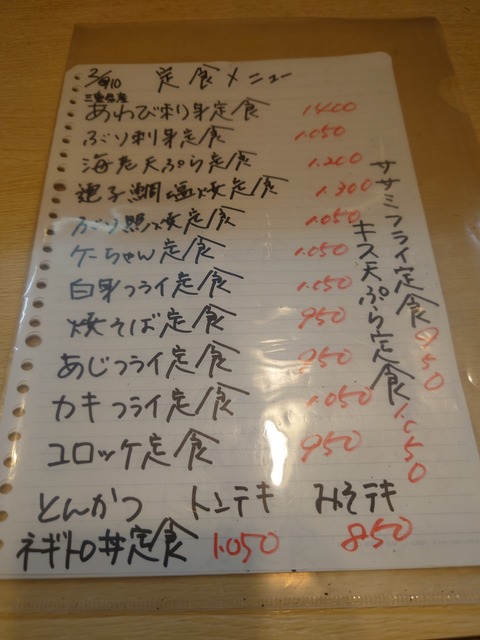 定食メニュー
三重県産
あわび刺身定食 1400
ぶり刺身定食 1.050
海老天ぷら定食 1.200
連子鯛塩焼定食 1.300
ぶり照焼定食 1.050
ケーちゃん定食 1.050
白身フライ定食 1.050
焼そば定食 950
あじフライ定食 950
カキフライ定食 1.050
コロッケ定食 950
ササミフライ定食 950
キス天ぷら定食 1.050
とんかつ トンテキ みそテキ
ネギトロ丼定食 1.050 850